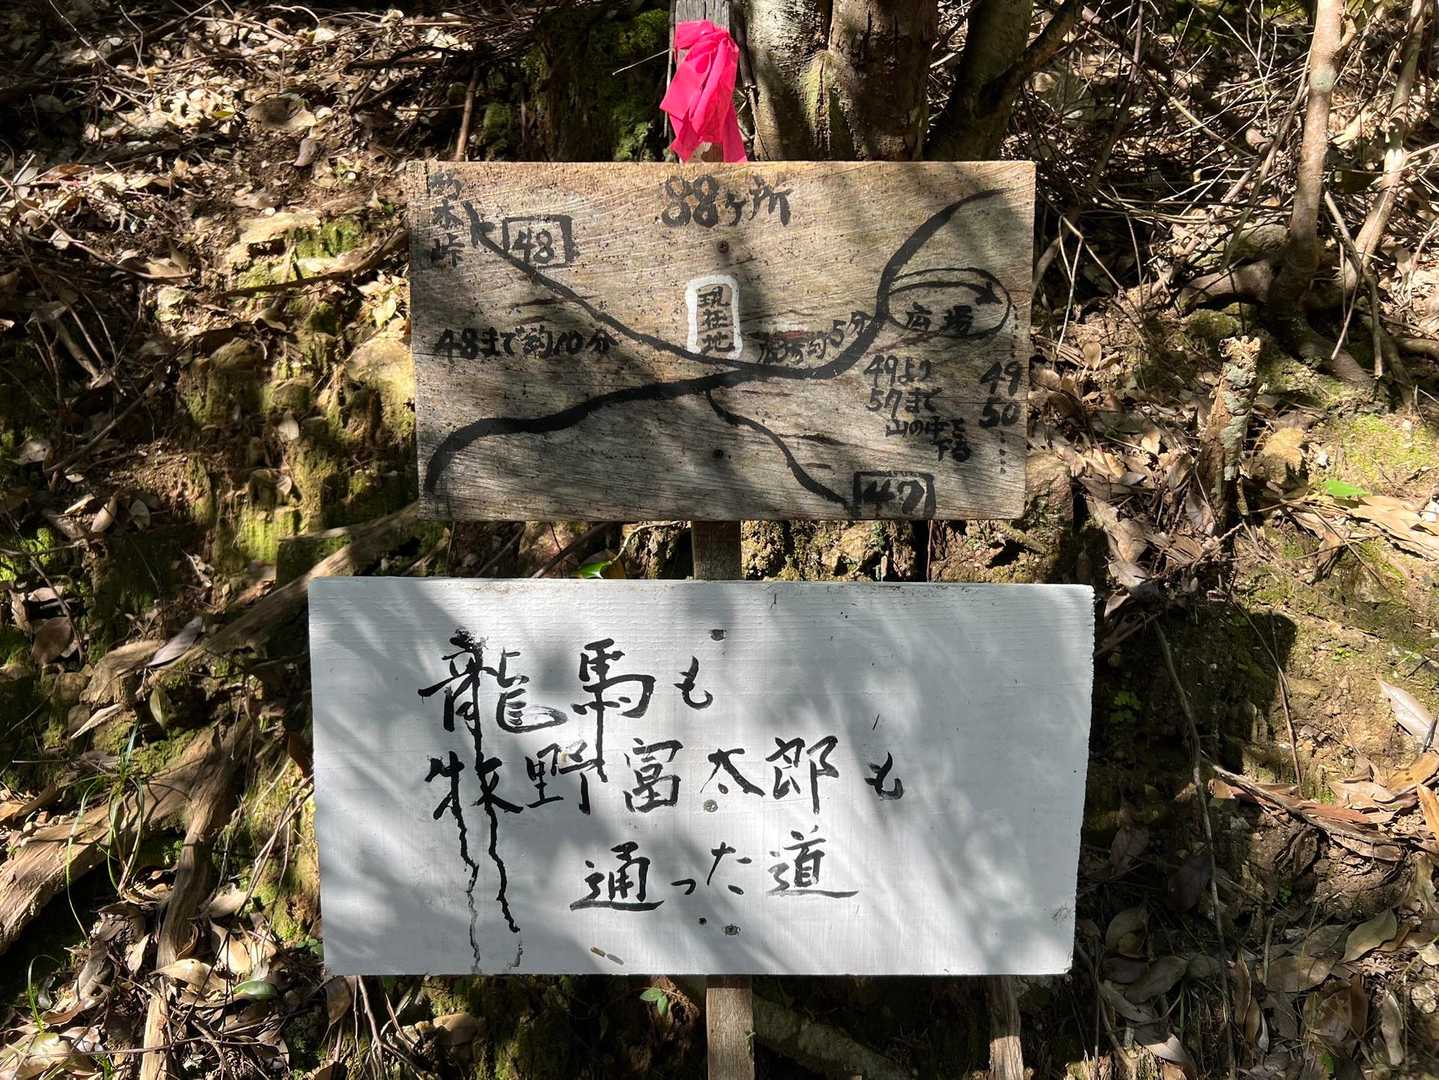 88ヶ所
48
現在地
48まで約10分
約5分
広場
49より
57まで
山の中を
下る
49
50
47
龍馬も
牧野富太郎も
通った道